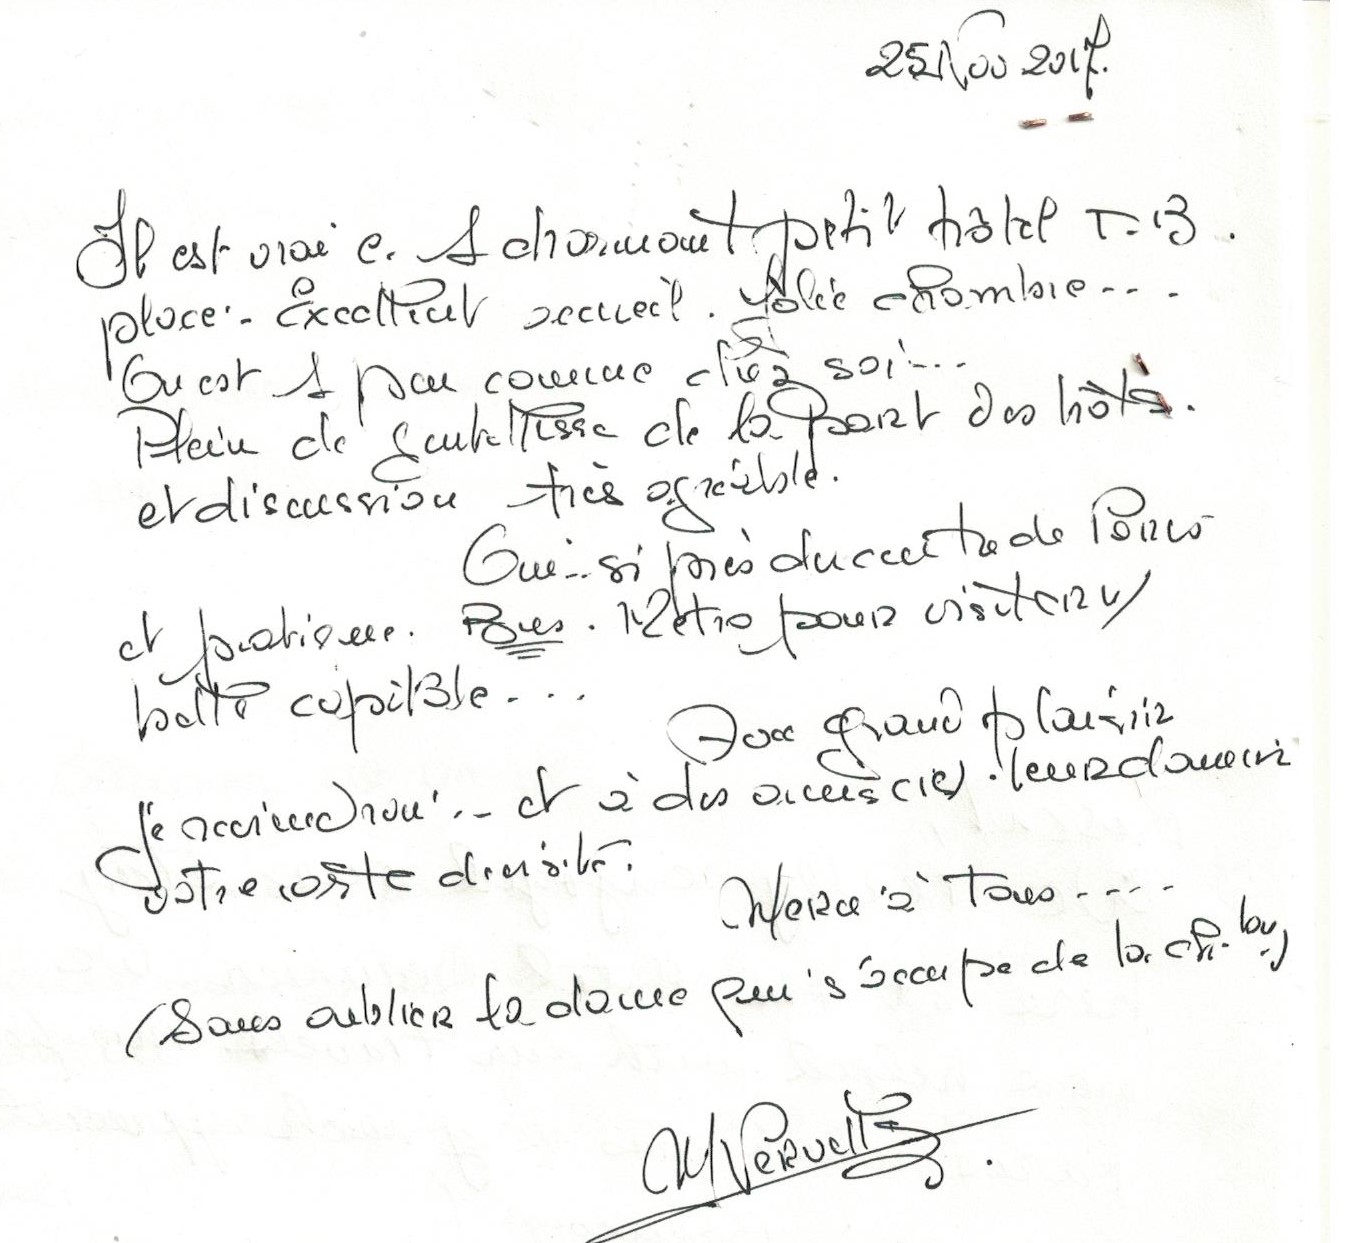 25 Nov 2017.
Il est vrai c. 1 charmant petit hôtel T. B.
placé.. Excellent accueil. Jolie chambre...
On est 1 peu comme chez soi...
Plein de gentillesse de la part des hôtes.
et discussion très agréable.
Oui.. si près du centre de Paris
et pratique. Bus. Métro pour visiter n/
belle capitale...
Avec grand plaisir
je reviendrai... et à des amis(es). leur donner
votre carte de visite.
Merci à Tous....
(Sans oublier la dame qui s'occupe de la ch.